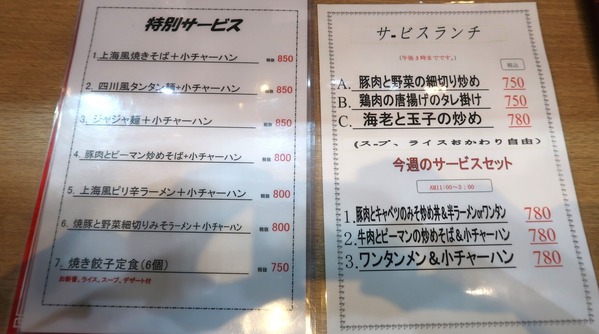 特別サービス
1. 上海風焼きそば＋小チャーハン 税抜 850
2. 四川風タンタン麺＋小チャーハン 税抜 850
3. ジャジャ麺＋小チャーハン 税抜 850
4. 豚肉とピーマン炒めそば＋小チャーハン 税抜 800
5. 上海風ピリ辛ラーメン＋小チャーハン 税抜 800
6. 焼豚と野菜細切りみそラーメン＋小チャーハン 税抜 800
7. 焼き餃子定食(6個) 税抜 750
お新香、ライス、スープ、デザート付
サービスランチ
(午後3時までです。)
税込
A. 豚肉と野菜の細切り炒め 750
B. 鶏肉の唐揚げのタレ掛け 750
C. 海老と玉子の炒め 780
(スープ、ライスおかわり自由)
今週のサービスセット
AM11:00～3:00
1. 豚肉とキャベツのみそ炒め丼＆半ラーメンorワンタン 780
2. 牛肉とピーマンの炒めそば＆小チャーハン 780
3. ワンタンメン＆小チャーハン 780